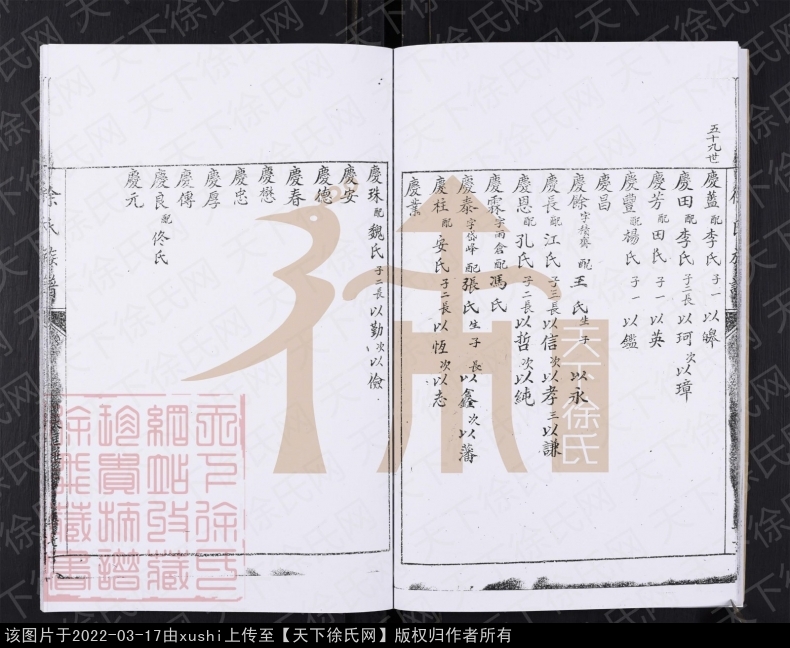 五十九世
慶藍配李氏子一以皞
慶田配李氏子二長以珂次以璋
慶芳配田氏子一以英
慶豐配楊氏子一以鑑
慶昌
慶餘字 配王氏生子以永
慶長配江氏子三長以信次以孝三以謙
慶恩配孔氏子二長以哲次以純
慶霖字雨倉配馮氏
慶泰字岱峰配張氏生子長以鑫次以藩
慶柱配安氏子二長以恆次以志
慶業
慶珠配魏氏子二長以勤次以儉
慶安
慶德
慶春
慶懋
慶忠
慶厚
慶傳
慶良配佟氏
慶元
徐氏族譜
天下徐氏
天下徐氏網站收藏珍貴族譜徐氏藏書
天下徐氏网
该图片于2022-03-17由xushi上传至【天下徐氏网】版权归作者所有